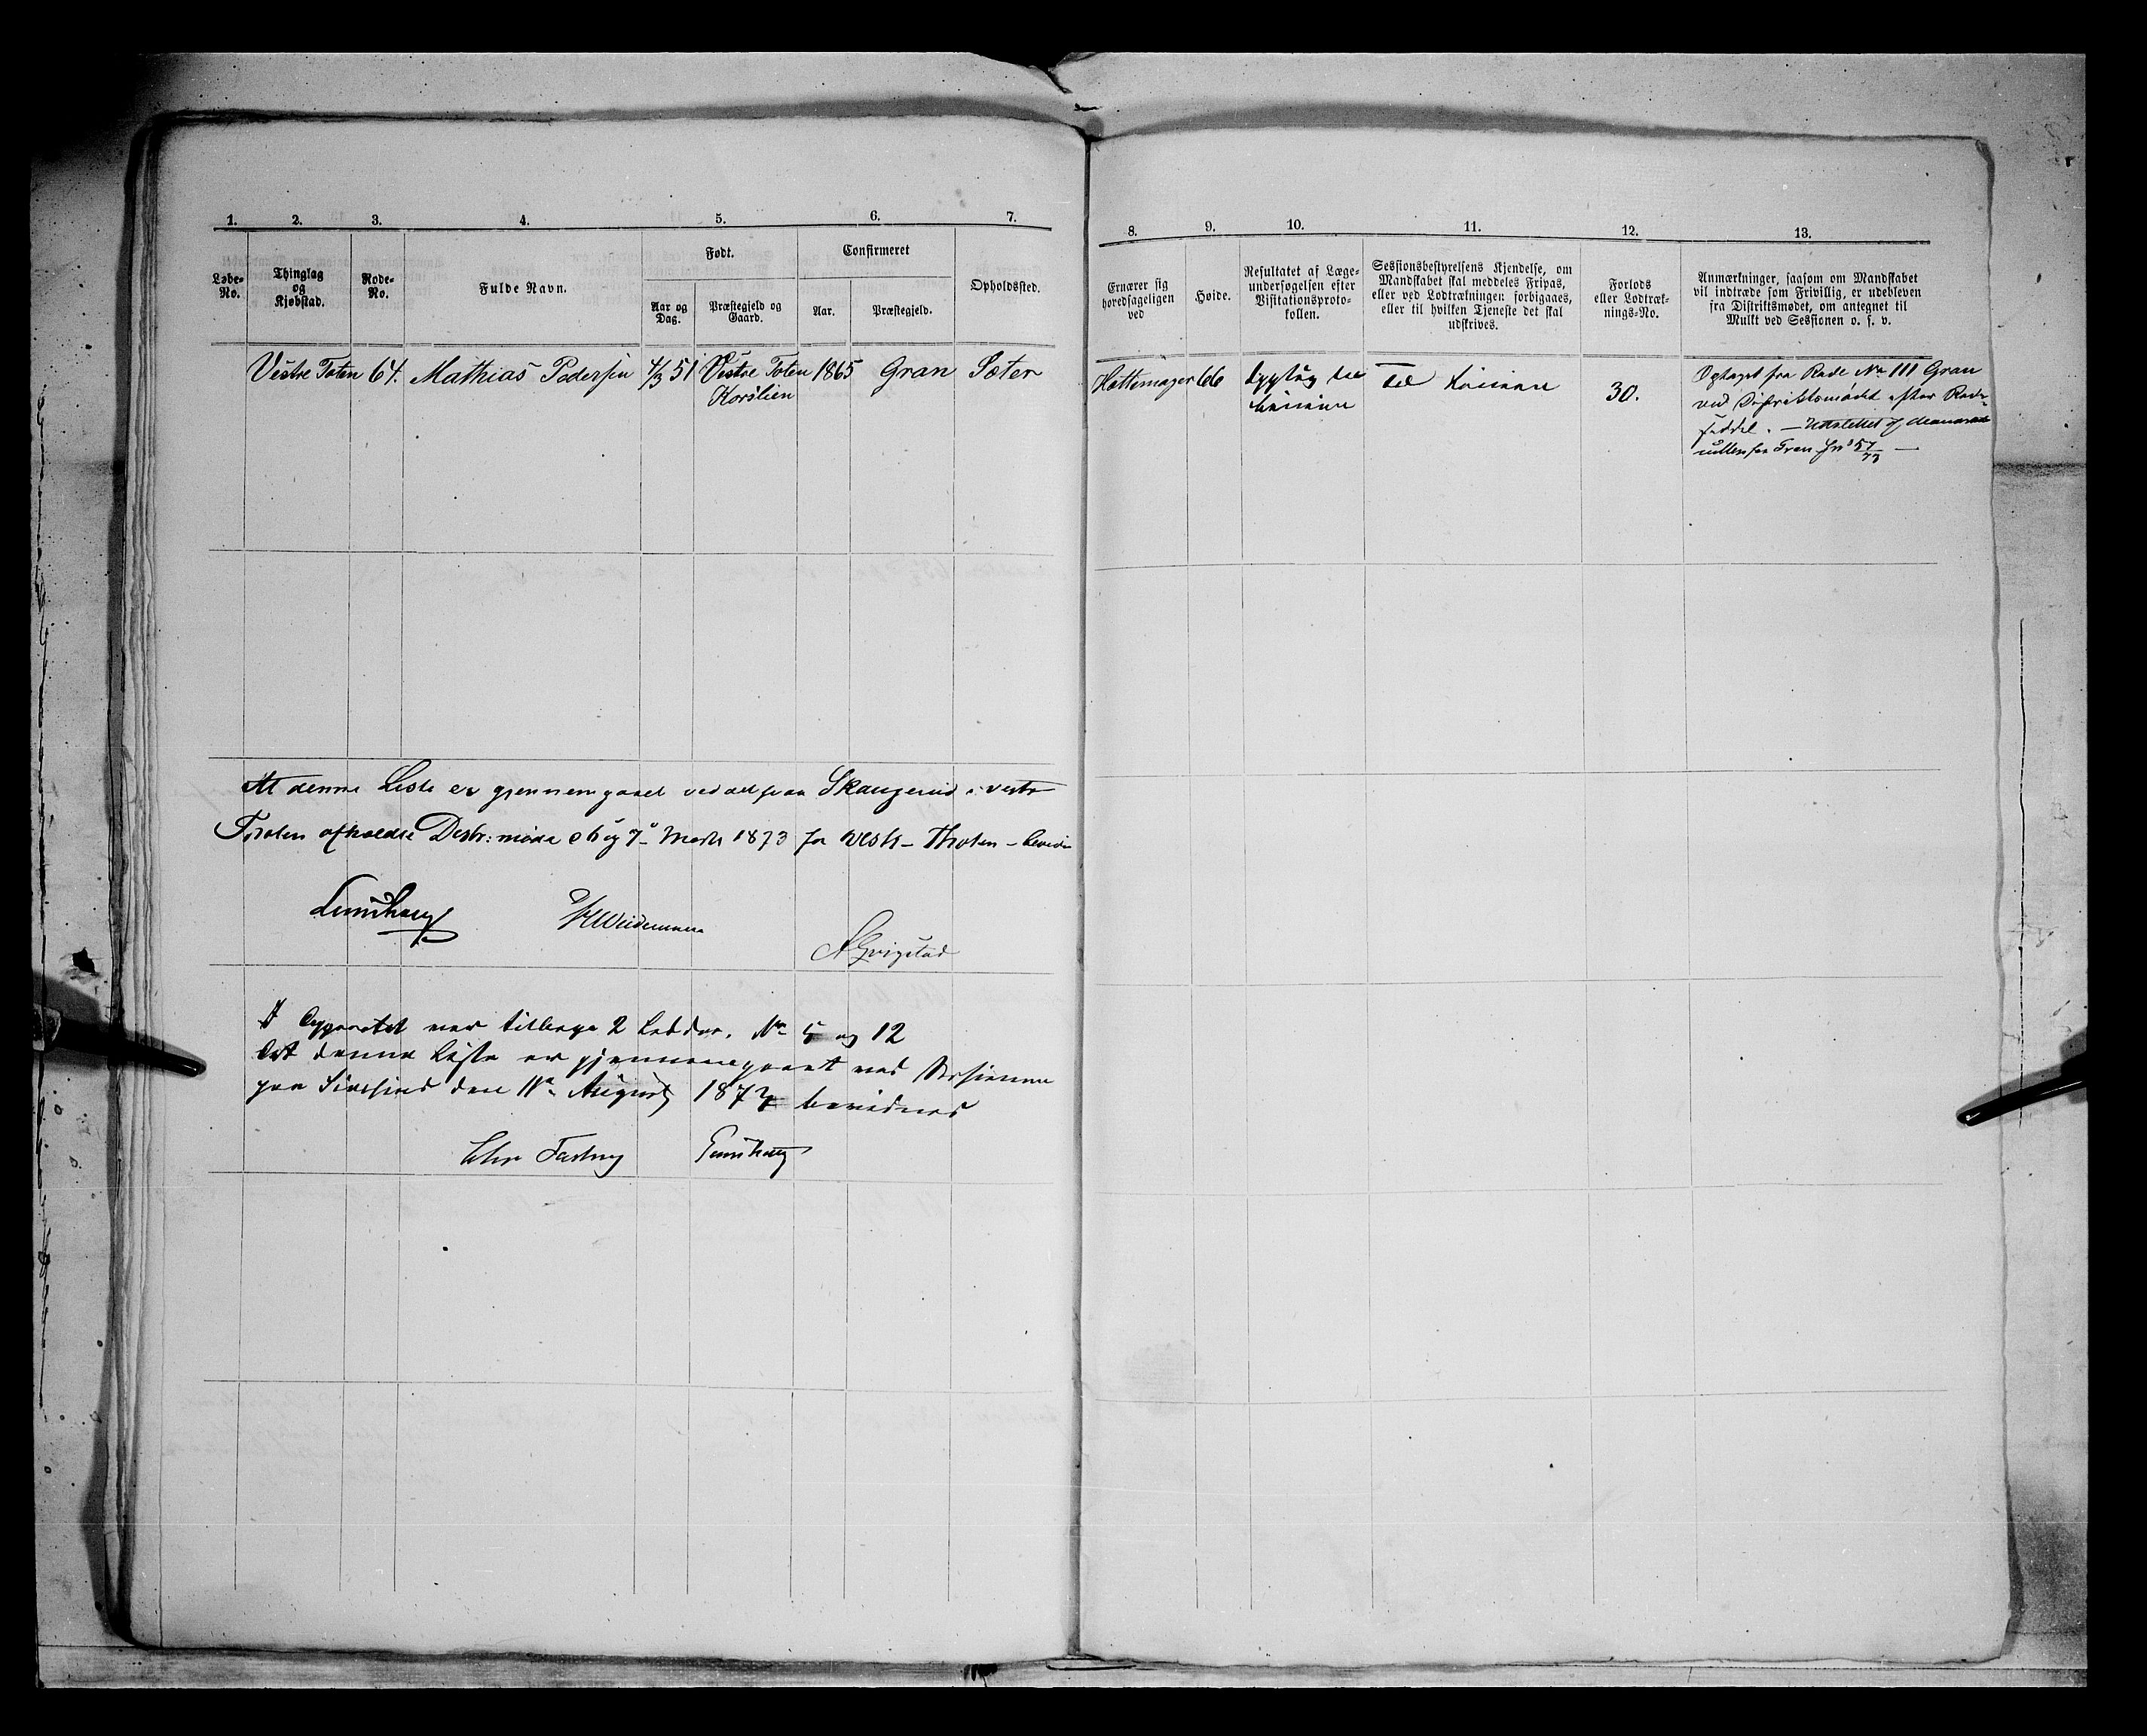 1. 2. 3. 4. 5. 6. 7.
Løbe-No.
Thinglag og Kjøbstad.
Rode-No.
Fulde Navn.
Født.
Aar og Dag.
Præstegjeld og Gaard.
Confirmeret
Aar.
Præstegjeld.
Opholdssted.
Vestre Toten 64. Mathias Pedersen 4/3 51 Vestre Toten 1865 Gran Sæter
Korslien
At denne Liste er gjennemgaaet ved det paa Skaugerud i vestr
Thoten afholdte Distr: møde 6 og 7 Marts 1873 for Vestr- Thoten -
H Weidemann
Apparatet var tilbage 2 Lodder. No 5 og 12
At denne Liste er gjennemgaaet ved Sessionen
paa den 11te August 1873 bevidnes
Chr
8. 9. 10. 11. 12. 13.
Ernærer sig
hovedsageligen
ved
Høide.
Resultatet af Læge-
undersøgelsen efter
Visitationsproto-
kollen.
Sessionsbestyrelsens Kjendelse, om
Mandskabet skal meddeles Fripas,
eller ved Lodtrækningen forbigaaes,
eller til hvilken Tjeneste det skal
udskrives.
Forlods
eller Lodtræk-
nings-No.
Anmærkninger, saasom om Mandskabet
vil indtræde som Frivillig, er udebleven
fra Distriktsmødet, om antegnet til
Mulkt ved Sessionen o. s. v.
Hattemager 66 dygtig til Til Linien 30.
Linien
Optaget fra Rode No 111 Gran
ved Distriktsmødet efter Rode-
seddel. — Udslettet af
rullen for Gran Jn 57/73 —